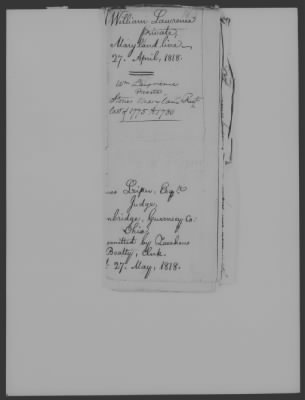 William Lawrence
private,
Maryland line
27. April, 1818.
Wm Lawrence
Private
Stones Maryland Regt
last of 1775 to 1780
Esqr
Judge,
nbridge, Guernsey Co:
Ohio,
mitted by Zacheus
Beatty, Clerk.
27. May, 1818.